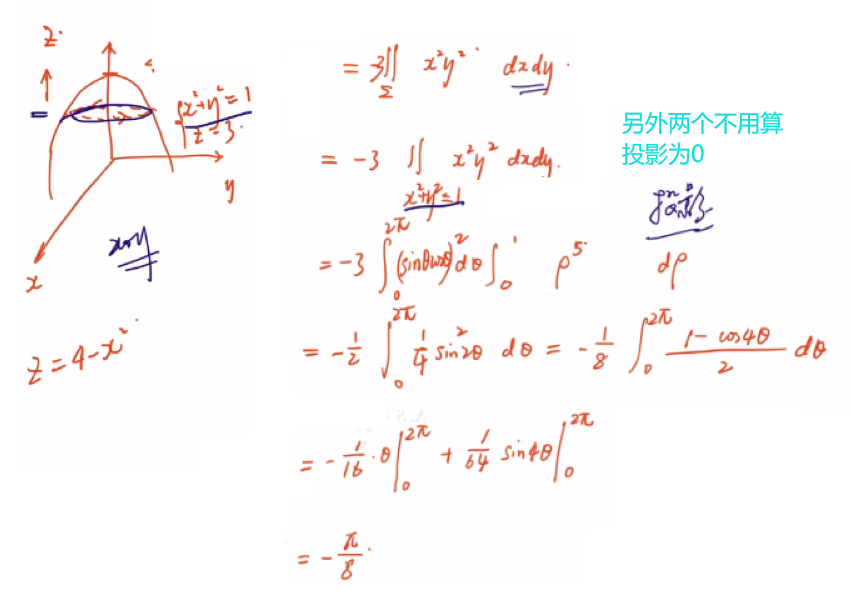 z
x²+y²=1
z=3
y
x
xoy
z=4-x²
=3∬ x²y² dxdy.
Σ
=-3 ∬ x²y² dxdy.
x²+y²=1
另外两个不用算
投影为0
投影
=-3 ∫₀^2π (sinθcosθ)²dθ ∫₀^1 ρ⁵ dρ
=-1/2 ∫₀^2π 1/4 sin²2θ dθ = -1/8 ∫₀^2π (1-cos4θ)/2 dθ
=-1/16·θ|₀^2π + 1/64 sin4θ|₀^2π
=-π/8.